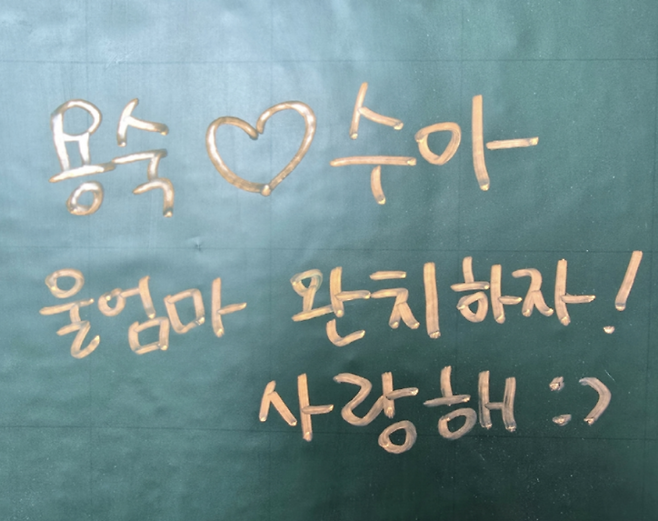 용숙 ♡ 수아
울엄마 완치하자!
사랑해 :)